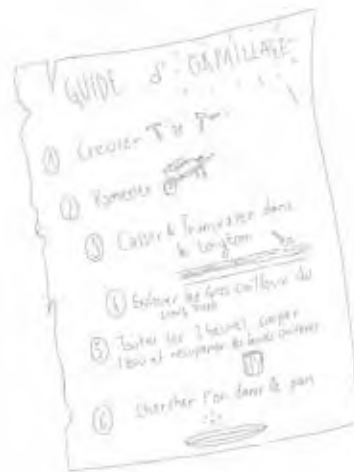 GUIDE d'ORPAILLAGE
① Creuser
② Ramener
③ Casser & Transvaser dans
le Longtom
④ Enlever les gros cailloux du
long tom
⑤ Toutes les 2 heures, couper
l'eau et récupérer les
⑥ Chercher l'or dans le pan